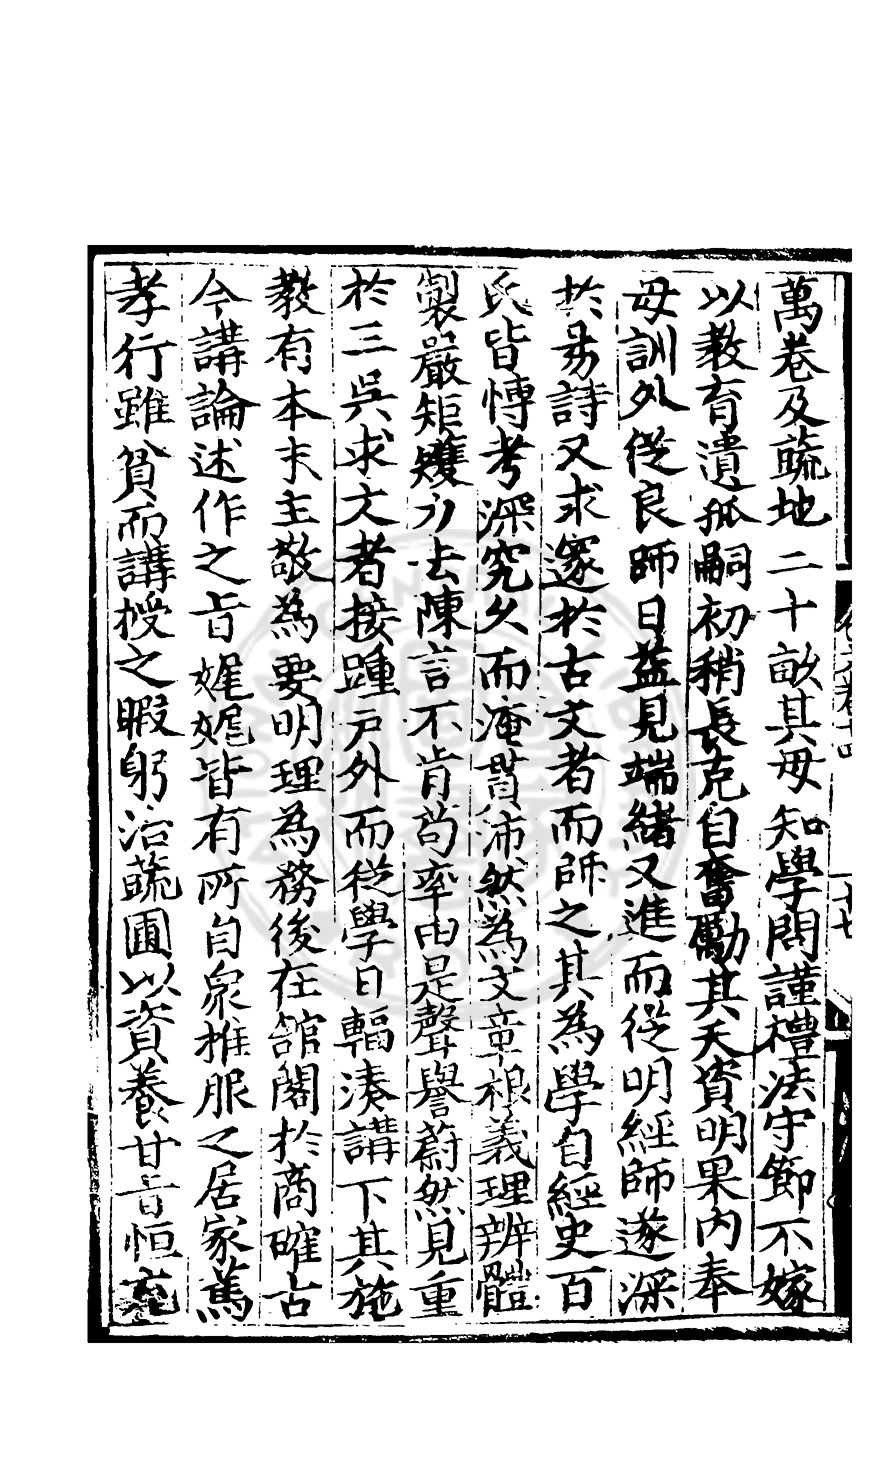 萬卷及蔬地二十畝其母知學問謹禮法守節不嫁
以教育遺孤嗣初稍長克自奮勵其天資明果內奉
母訓外從良師日益見端緒又進而從明經師遂深
於易詩又求邃於古文者而師之其為學自經史百
氏皆博考深究久而淹貫沛然為文章根義理辨體
製嚴矩矱力去陳言不肯苟率由是聲譽蔚然見重
於三吳求文者接踵戶外而從學日輻湊講下其施
教有本末主敬為要明理為務後在舘閣於商確古
今講論述作之旨娓娓皆有所自衆推服之居家篤
孝行雖貧而講授之暇躬治蔬圃以資養甘旨恒充